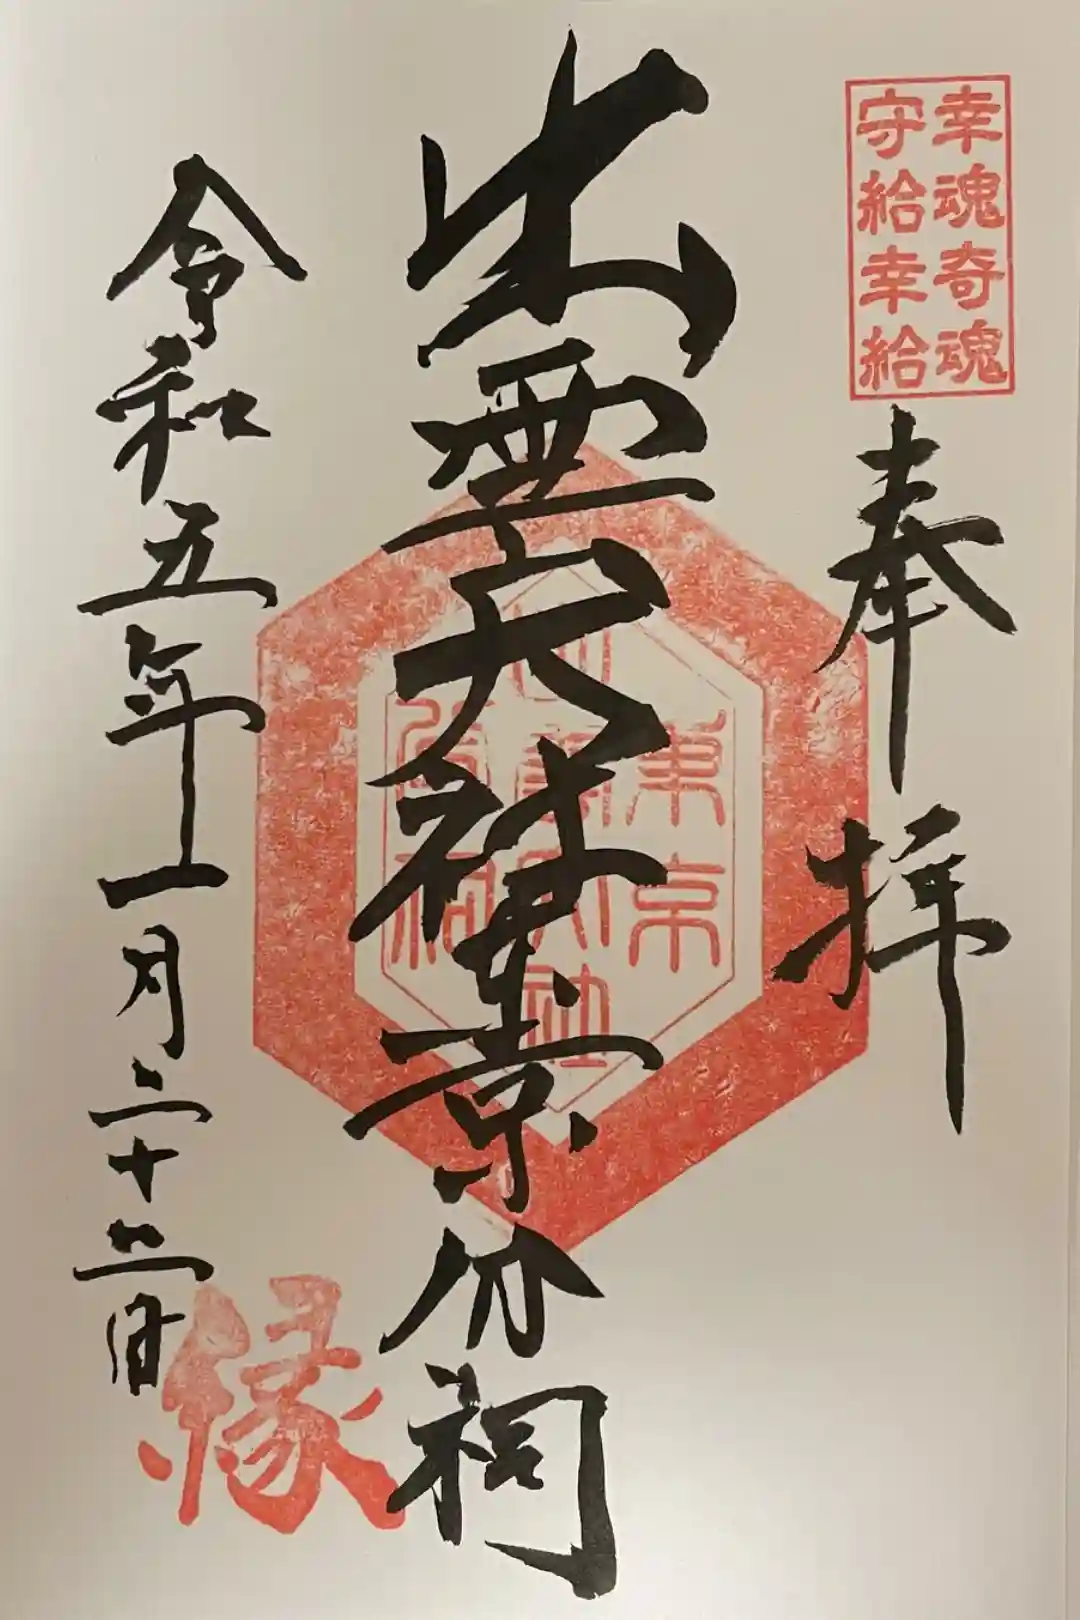 幸魂奇魂
守給幸給
奉拝
出雲大社東京分祠
東京
出雲大社
分祠
令和五年一月二十三日
縁